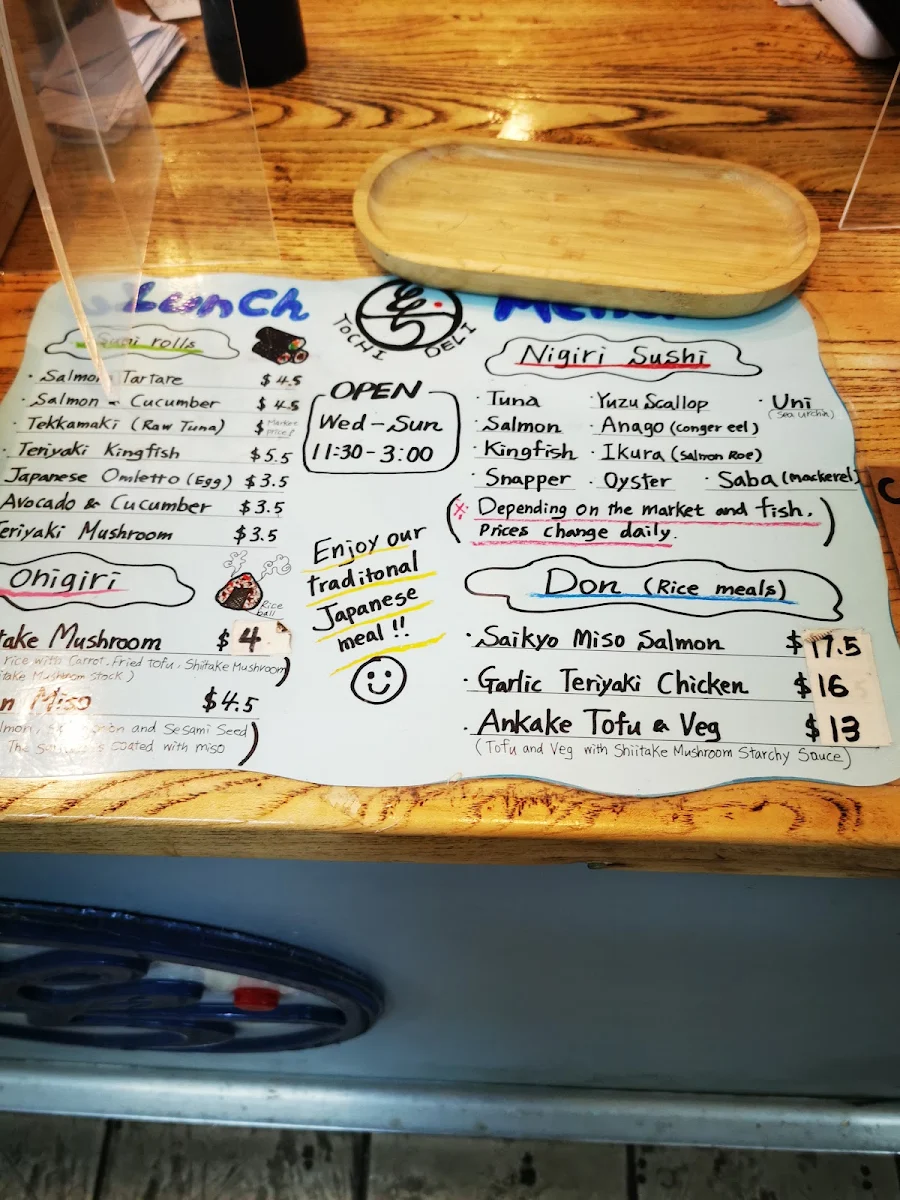 Lunch
TOCHI DELI
Sushi rolls
· Salmon Tartare $4.5
· Salmon & Cucumber $4.5
· Tekkamaki (Raw Tuna) $ Market price!
· Teriyaki Kingfish $5.5
Japanese Omletto (Egg) $3.5
Avocado & Cucumber $3.5
Teriyaki Mushroom $3.5
Ohigiri
Rice ball
take Mushroom $4
rice with Carrot. Fried Tofu, Shiitake Mushroom
take Mushroom Stock)
Miso $4.5
and Sesami Seed)
The coated with miso)
OPEN
Wed - Sun
11:30 - 3:00
Enjoy our
traditonal
Japanese
meal !!
Menu
Nigiri Sushi
· Tuna · Yuzu Scallop · Uni
(Sea urchin)
· Salmon · Anago (conger eel)
· Kingfish · Ikura (Salmon Roe)
· Snapper · Oyster · Saba (mackerel)
(※ Depending on the market and fish.
Prices change daily.)
Don (Rice meals)
· Saikyo Miso Salmon $17.5
· Garlic Teriyaki Chicken $16
· Ankake Tofu & Veg $13
(Tofu and Veg with Shiitake Mushroom Starchy Sauce)